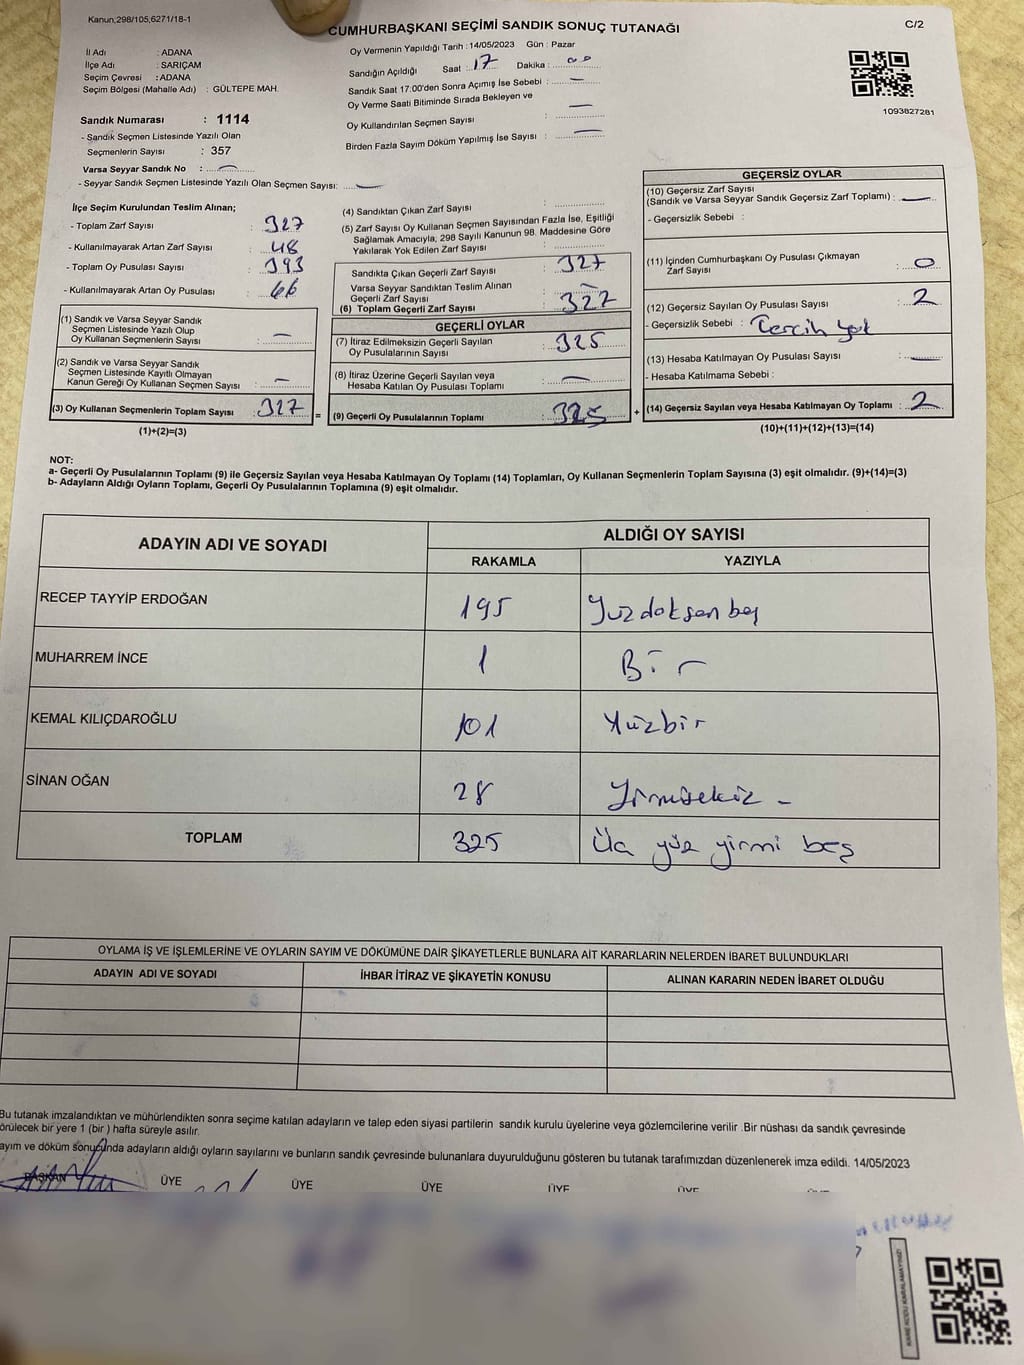 Kanun,298/105,6271/18-1
CUMHURBAŞKANI SEÇİMİ SANDIK SONUÇ TUTANAĞI
C/2
İl Adı : ADANA
İlçe Adı : SARIÇAM
Seçim Çevresi : ADANA
Seçim Bölgesi (Mahalle Adı) : GÜLTEPE MAH.
Oy Vermenin Yapıldığı Tarih : 14/05/2023 Gün : Pazar
Sandığın Açıldığı Saat : 17 Dakika : 00
Sandık Saat 17.00'den Sonra Açımış İse Sebebi : —
Oy Verme Saati Bitiminde Sırada Bekleyen ve
Oy Kullandırılan Seçmen Sayısı : —
Birden Fazla Sayım Döküm Yapılmış İse Sayısı : —
1093827281
Sandık Numarası : 1114
- Sandık Seçmen Listesinde Yazılı Olan
Seçmenlerin Sayısı : 357
Varsa Seyyar Sandık No : —
- Seyyar Sandık Seçmen Listesinde Yazılı Olan Seçmen Sayısı: —
İlçe Seçim Kurulundan Teslim Alınan;
- Toplam Zarf Sayısı : 327
- Kullanılmayarak Artan Zarf Sayısı : 48
- Toplam Oy Pusulası Sayısı : 393
- Kullanılmayarak Artan Oy Pusulası : 66
(1) Sandık ve Varsa Seyyar Sandık
Seçmen Listesinde Yazılı Olup
Oy Kullanan Seçmenlerin Sayısı : —
(2) Sandık ve Varsa Seyyar Sandık
Seçmen Listesinde Kayıtlı Olmayan
Kanun Gereği Oy Kullanan Seçmen Sayısı : —
(3) Oy Kullanan Seçmenlerin Toplam Sayısı : 327
(1)+(2)=(3)
(4) Sandıktan Çıkan Zarf Sayısı :
(5) Zarf Sayısı Oy Kullanan Seçmen Sayısından Fazla İse, Eşitliği
Sağlamak Amacıyla, 298 Sayılı Kanunun 98. Maddesine Göre
Yakılarak Yok Edilen Zarf Sayısı :
Sandıkta Çıkan Geçerli Zarf Sayısı : 327
Varsa Seyyar Sandıktan Teslim Alınan
Geçerli Zarf Sayısı : —
(6) Toplam Geçerli Zarf Sayısı : 327
GEÇERLİ OYLAR
(7) İtiraz Edilmeksizin Geçerli Sayılan
Oy Pusulalarının Sayısı : 325
(8) İtiraz Üzerine Geçerli Sayılan veya
Hesaba Katılan Oy Pusulası Toplamı : —
= (9) Geçerli Oy Pusulalarının Toplamı : 325
GEÇERSİZ OYLAR
(10) Geçersiz Zarf Sayısı
(Sandık ve Varsa Seyyar Sandık Geçersiz Zarf Toplamı) : —
- Geçersizlik Sebebi :
(11) İçinden Cumhurbaşkanı Oy Pusulası Çıkmayan
Zarf Sayısı : 0
(12) Geçersiz Sayılan Oy Pusulası Sayısı : 2
- Geçersizlik Sebebi : Tercih yok
(13) Hesaba Katılmayan Oy Pusulası Sayısı : —
- Hesaba Katılmama Sebebi :
+ (14) Geçersiz Sayılan veya Hesaba Katılmayan Oy Toplamı : 2
(10)+(11)+(12)+(13)=(14)
NOT:
a- Geçerli Oy Pusulalarının Toplamı (9) ile Geçersiz Sayılan veya Hesaba Katılmayan Oy Toplamı (14) Toplamları, Oy Kullanan Seçmenlerin Toplam Sayısına (3) eşit olmalıdır. (9)+(14)=(3)
b- Adayların Aldığı Oyların Toplamı, Geçerli Oy Pusulalarının Toplamına (9) eşit olmalıdır.
ADAYIN ADI VE SOYADI ALDIĞI OY SAYISI
RAKAMLA YAZIYLA
RECEP TAYYİP ERDOĞAN 195 Yuzdoksan beş
MUHARREM İNCE 1 Bir
KEMAL KILIÇDAROĞLU 101 Yüzbir
SİNAN OĞAN 28 Yirmisekiz -
TOPLAM 325 Üç yüz yirmi beş
OYLAMA İŞ VE İŞLEMLERİNE VE OYLARIN SAYIM VE DÖKÜMÜNE DAİR ŞİKAYETLERLE BUNLARA AİT KARARLARIN NELERDEN İBARET BULUNDUKLARI
ADAYIN ADI VE SOYADI İHBAR İTİRAZ VE ŞİKAYETİN KONUSU ALINAN KARARIN NEDEN İBARET OLDUĞU
Bu tutanak imzalandıktan ve mühürlendikten sonra seçime katılan adayların ve talep eden siyasi partilerin sandık kurulu üyelerine veya gözlemcilerine verilir .Bir nüshası da sandık çevresinde
örülecek bir yere 1 (bir ) hafta süreyle asılır.
ayım ve döküm sonucunda adayların aldığı oyların sayılarını ve bunların sandık çevresinde bulunanlara duyurulduğunu gösteren bu tutanak tarafımızdan düzenlenerek imza edildi. 14/05/2023
BAŞKAN ÜYE ÜYE ÜYE ÜYE ÜYE
KARE KODU KARALAMAYINIZ!